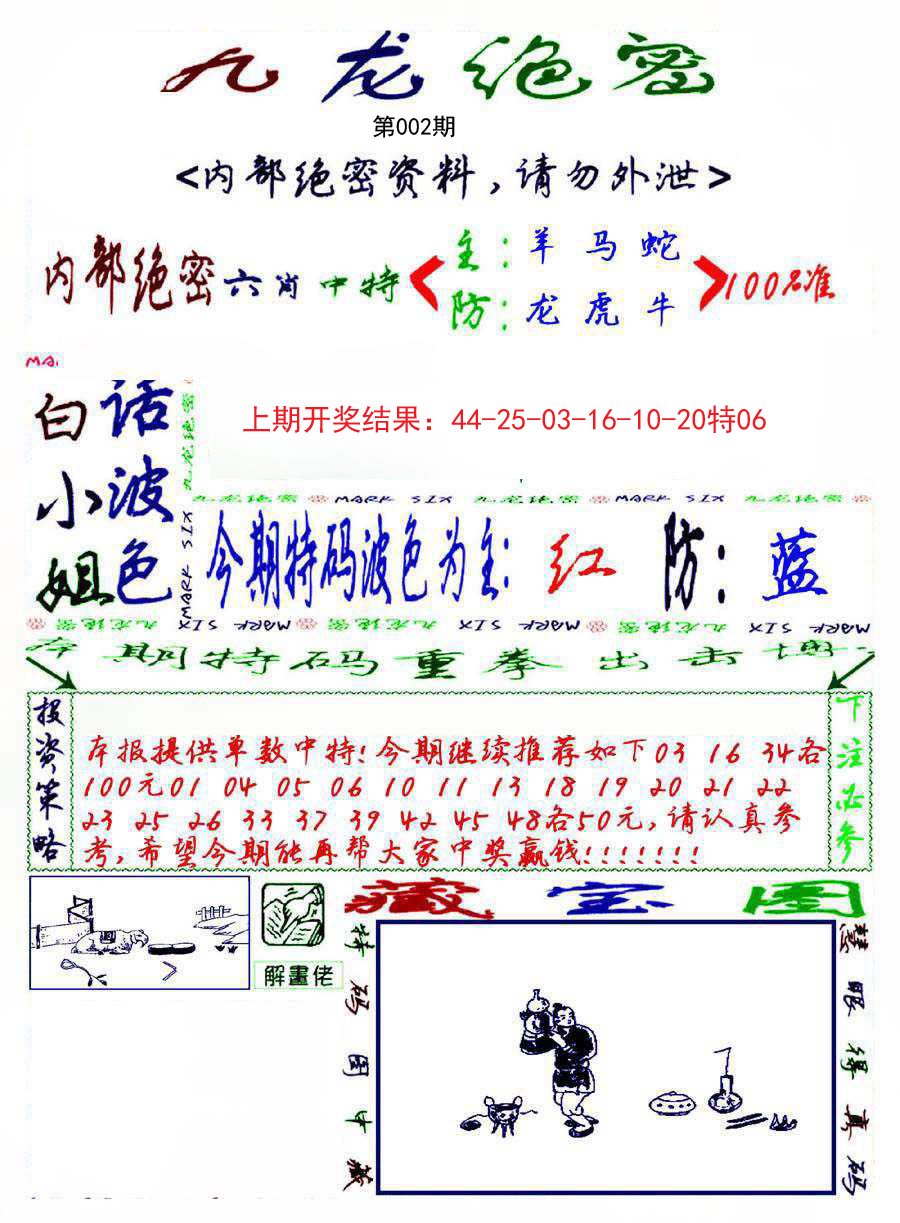 九龙绝密
第002期
<内部绝密资料,请勿外泄>
内部绝密六肖中特
主:羊马蛇
防:龙虎牛
100%准
MA
白小姐
话波色
九龙绝密
MARK SIX
上期开奖结果：44-25-03-16-10-20特06
九龙绝密 MARK SIX 九龙绝密 MARK SIX 九龙绝密
今期特码波色为主:红 防:蓝
九龙绝密 MARK SIX 九龙绝密 MARK SIX 九龙绝密 MARK SIX
期特码重拳出击
投资策略
本报提供单数中特!今期继续推荐如下03 16 34各
100元01 04 05 06 10 11 13 18 19 20 21 22
23 25 26 33 37 39 42 45 48各50元,请认真参
考,希望今期能再帮大家中奖赢钱!!!!!!!
下注必参
解畫佬
藏宝图
特码图中藏
慧眼得真码